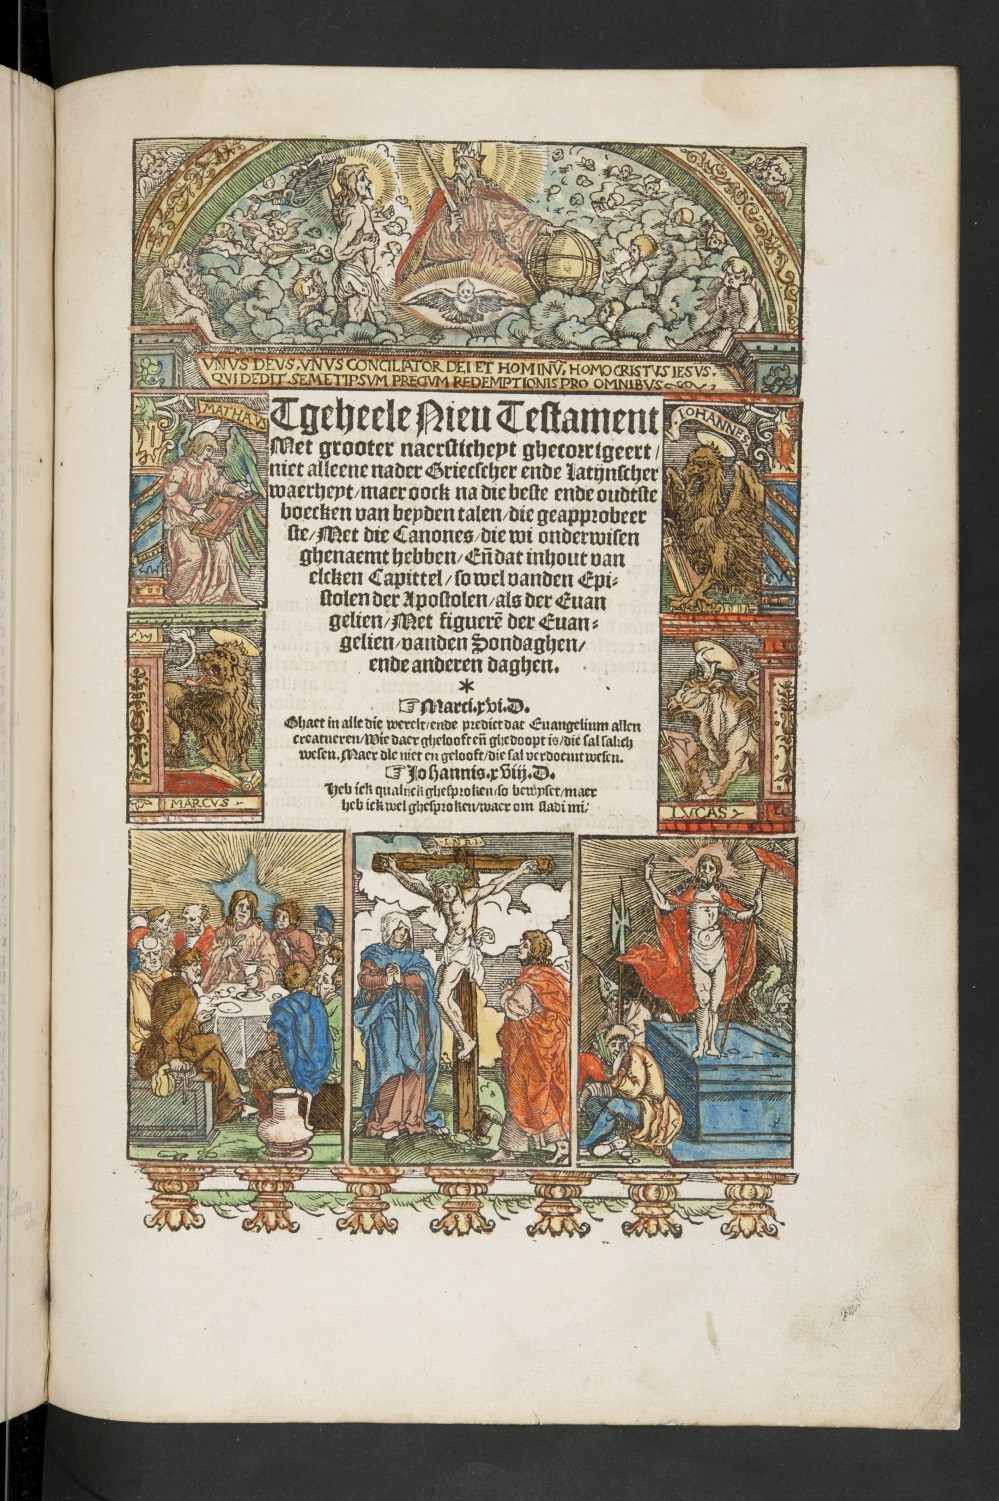 VNVS DEVS, VNVS CONCILIATOR DEI ET HOMINŪ, HOMO CRISTVS IESVS.
QVI DEDIT SEMETIPSVM PRECIVM REDEMPTIONIS PRO OMNIBVS
MATHAVS
IOHANNES
Tgeheele Nieu Testament
Met grooter naersticheyt ghecorrigeert /
niet alleene nader Griecscher ende latijnscher
waerheyt / maer oock na die beste ende oudtste
boecken van beyden talen / die geapprobeer
ste / Met die Canones / die wi onderwisen
ghenaemt hebben / Eñ dat inhout van
elcken Capittel / so wel vanden Epi=
stolen der Apostolen / als der Euan
gelien / Met figuerē der Euan=
gelien / vanden Sondaghen /
ende anderen daghen.
*
☞ Marci.xvi.D.
Ghaet in alle die werelt / ende predict dat Euangelium allen
creatueren / Wie daer ghelooft eñ ghedoopt is / die sal salich
wesen. Maer die niet en gelooft / die sal verdoemt wesen.
☞ Johannis.xviij.D.
Heb ick qualijck ghesproken / so bewijset / maer
heb ick wel ghesproken / waer om sladi mi.
MARCVS
LVCAS
INRI